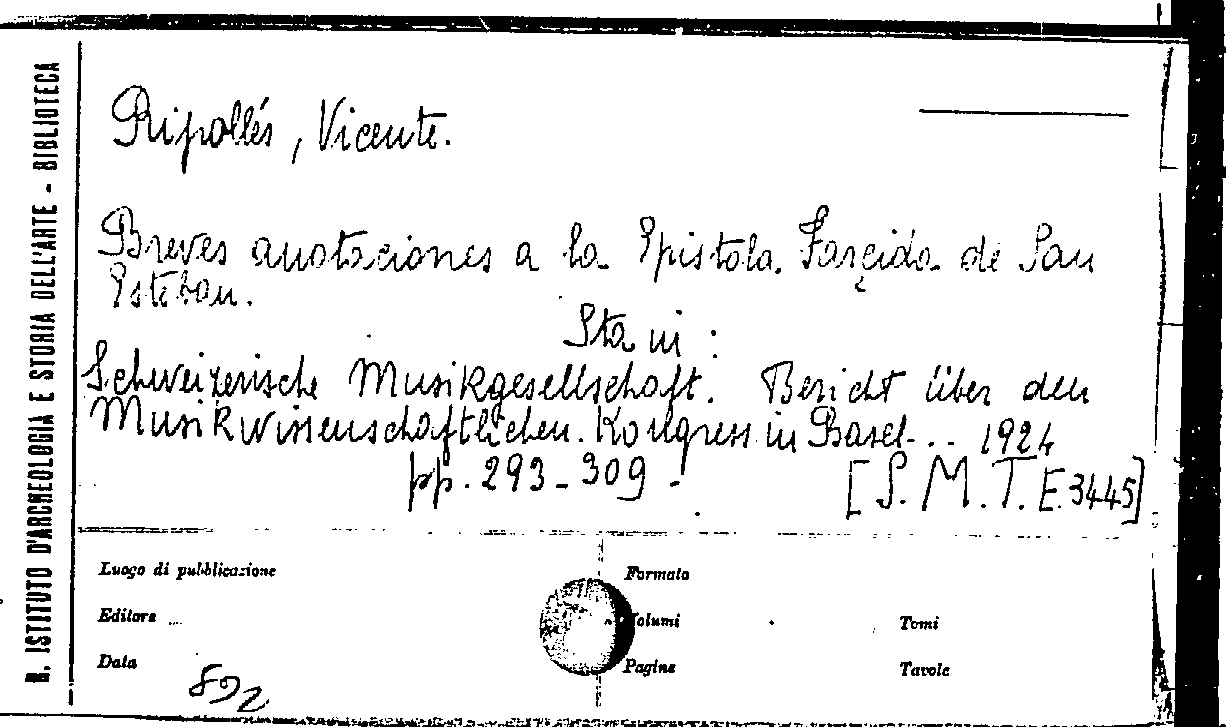 R. ISTITUTO D'ARCHEOLOGIA E STORIA DELL'ARTE - BIBLIOTECA
Ripollés, Vicente.
Breves anotaciones a la Epistola Farçida de San
Esteban.
Sta in:
Schweizerische Musikgesellschaft. Bericht über den
Musikwissenschaftlichen Kongress in Basel... 1924
pp. 293-309.
[S. M. T. E. 3445]
Luogo di pubblicazione
Formato
Editore
Volumi
Tomi
Data
Pagine
Tavole
892